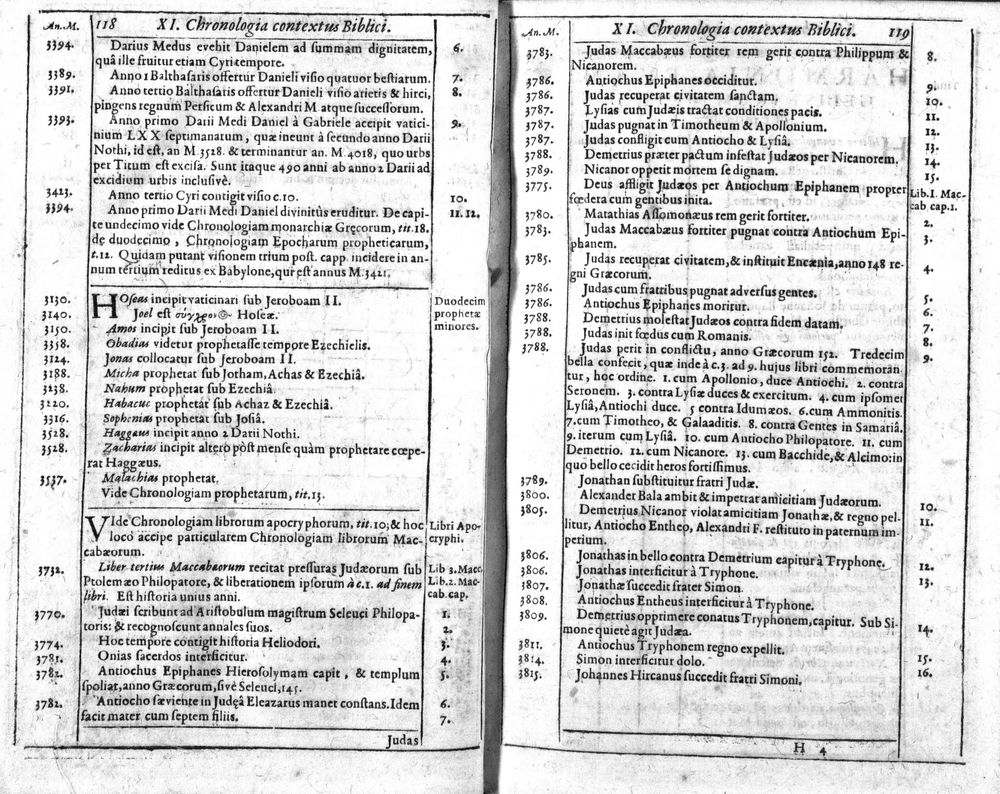 An. M. 118 XI. Chronologia contextus Biblici.
3394. Darius Medus evehit Danielem ad summam dignitatem, 6.
quâ ille fruitur etiam Cyri tempore.
3389. Anno 1 Balthasaris offertur Danieli visio quatuor bestiarum. 7.
3391. Anno tertio Balthasaris offertur Danieli visio arietis & hirci, 8.
pingens regnum Persicum & Alexandri M. atque successorum.
3393. Anno primo Darii Medi Daniel à Gabriele accipit vatici- 9.
nium LXX septimanatum, quæ ineunt à secundo anno Darii
Nothi, id est, an M. 3528. & terminantur an. M. 4018, quo urbs
per Titum est excisa. Sunt itaque 490 anni ab anno 2 Darii ad
excidium urbis inclusivè.
3423. Anno tertio Cyri contigit visio c. 10. 10.
3394. Anno primo Darii Medi Daniel divinitùs eruditur. De capi- 11. 12.
te undecimo vide Chronologiam monarchiæ Græcorum, tit. 18.
de duodecimo, Chronologiam Epocharum propheticarum,
t. 12. Quidam putant visionem trium post. capp. incidere in an-
num tertium reditus ex Babylone, qui est annus M. 3421.
3130. HOseas incipit vaticinari sub Jeroboam II. Duodecim
3140. Joel est σύγχρον Hoseæ. prophetæ
3150. Amos incipit sub Jeroboam II. minores.
3358. Obadias videtur prophetasse tempore Ezechielis.
3124. Jonas collocatur sub Jeroboam II.
3188. Micha prophetat sub Jotham, Achas & Ezechiâ.
3238. Nahum prophetat sub Ezechiâ.
3220. Habacuc prophetat sub Achaz & Ezechiâ.
3316. Sophonias prophetat sub Josiâ.
3528. Haggæus incipit anno 2 Darii Nothi.
3528. Zacharias incipit altero pòst mense quàm prophetare cœpe-
rat Haggæus.
3537. Malachias prophetat.
Vide Chronologiam prophetarum, tit. 13.
VIde Chronologiam librorum apocryphorum, tit. 10; & hoc Libri Apo-
loco accipe particularem Chronologiam librorum Mac- cryphi.
cabæorum.
3732. Liber tertius Maccabæorum recitat pressuras Judæorum sub Lib 3. Macc.
Ptolemæo Philopatore, & liberationem ipsorum à c. 1. ad finem Lib. 2. Mac-
libri. Est historia unius anni. cab. cap.
3770. Judæi scribunt ad Aristobulum magistrum Seleuci Philopa- 1.
toris: & recognoscunt annales suos. 2.
3774. Hoc tempore contigit historia Heliodori. 3.
3781. Onias sacerdos interficitur. 4.
3782. Antiochus Epiphanes Hierosolymam capit, & templum 5.
spoliat, anno Græcorum, sive Seleuci, 145.
3782. Antiocho sæviente in Judęâ Eleazarus manet constans. Idem 6.
facit mater cum septem filiis. 7.
Judas
An. M. XI. Chronologia contextus Biblici. 119
3783. Judas Maccabæus fortiter rem gerit contra Philippum & 8.
Nicanorem.
3786. Antiochus Epiphanes occiditur. 9.
3786. Judas recuperat civitatem sanctam. 10.
3787. Lysias cum Judæis tractat conditiones pacis. 11.
3787. Judas pugnat in Timotheum & Apollonium. 12.
3787. Judas confligit cum Antiocho & Lysiâ. 13.
3788. Demetrius præter pactum infestat Judæos per Nicanorem. 14.
3789. Nicanor oppetit mortem se dignam. 15.
3775. Deus affligit Judæos per Antiochum Epiphanem propter Lib. I. Mac-
fœdera cum gentibus inita. cab cap. 1.
3780. Matathias Assomonæus rem gerit fortiter. 2.
3783. Judas Maccabæus fortiter pugnat contra Antiochum Epi- 3.
phanem.
3785. Judas recuperat civitatem, & instituit Encænia, anno 148 re- 4.
gni Græcorum.
3786. Judas cum fratribus pugnat adversus gentes. 5.
3786. Antiochus Epiphanes moritur. 6.
3788. Demetrius molestat Judæos contra fidem datam. 7.
3788. Judas init fœdus cum Romanis. 8.
3788. Judas perit in conflictu, anno Græcorum 152. Tredecim 9.
bella confecit, quæ inde à c. 3. ad 9. hujus libri commemoran-
tur, hoc ordine. 1. cum Apollonio, duce Antiochi. 2. contra
Seronem. 3. contra Lysiæ duces & exercitum. 4. cum ipsomet
Lysiâ, Antiochi duce. 5 contra Idumæos. 6. cum Ammonitis.
7. cum Timotheo, & Galaaditis. 8. contra Gentes in Samariâ.
9. iterum cum Lysiâ. 10. cum Antiocho Philopatore. 11. cum
Demetrio. 12. cum Nicanore. 13. cum Bacchide, & Alcimo: in
quo bello cecidit heros fortissimus.
3789. Jonathan substituitur fratri Judæ.
3800. Alexander Bala ambit & impetrat amicitiam Judæorum. 10.
3805. Demetrius Nicanor violat amicitiam Jonathæ, & regno pel- 11.
litur, Antiocho Entheo, Alexandri F. restituto in paternum im-
perium.
3806. Jonathas in bello contra Demetrium capitur à Tryphone. 12.
3806. Jonathas interficitur à Tryphone. 13.
3807. Jonathæ succedit frater Simon.
3808. Antiochus Entheus interficitur à Tryphone.
3809. Demetrius opprimere conatus Tryphonem, capitur. Sub Si- 14.
mone quietè agit Judæa.
3811. Antiochus Tryphonem regno expellit.
3814. Simon interficitur dolo. 15.
3815. Johannes Hircanus succedit fratri Simoni. 16.
H 4